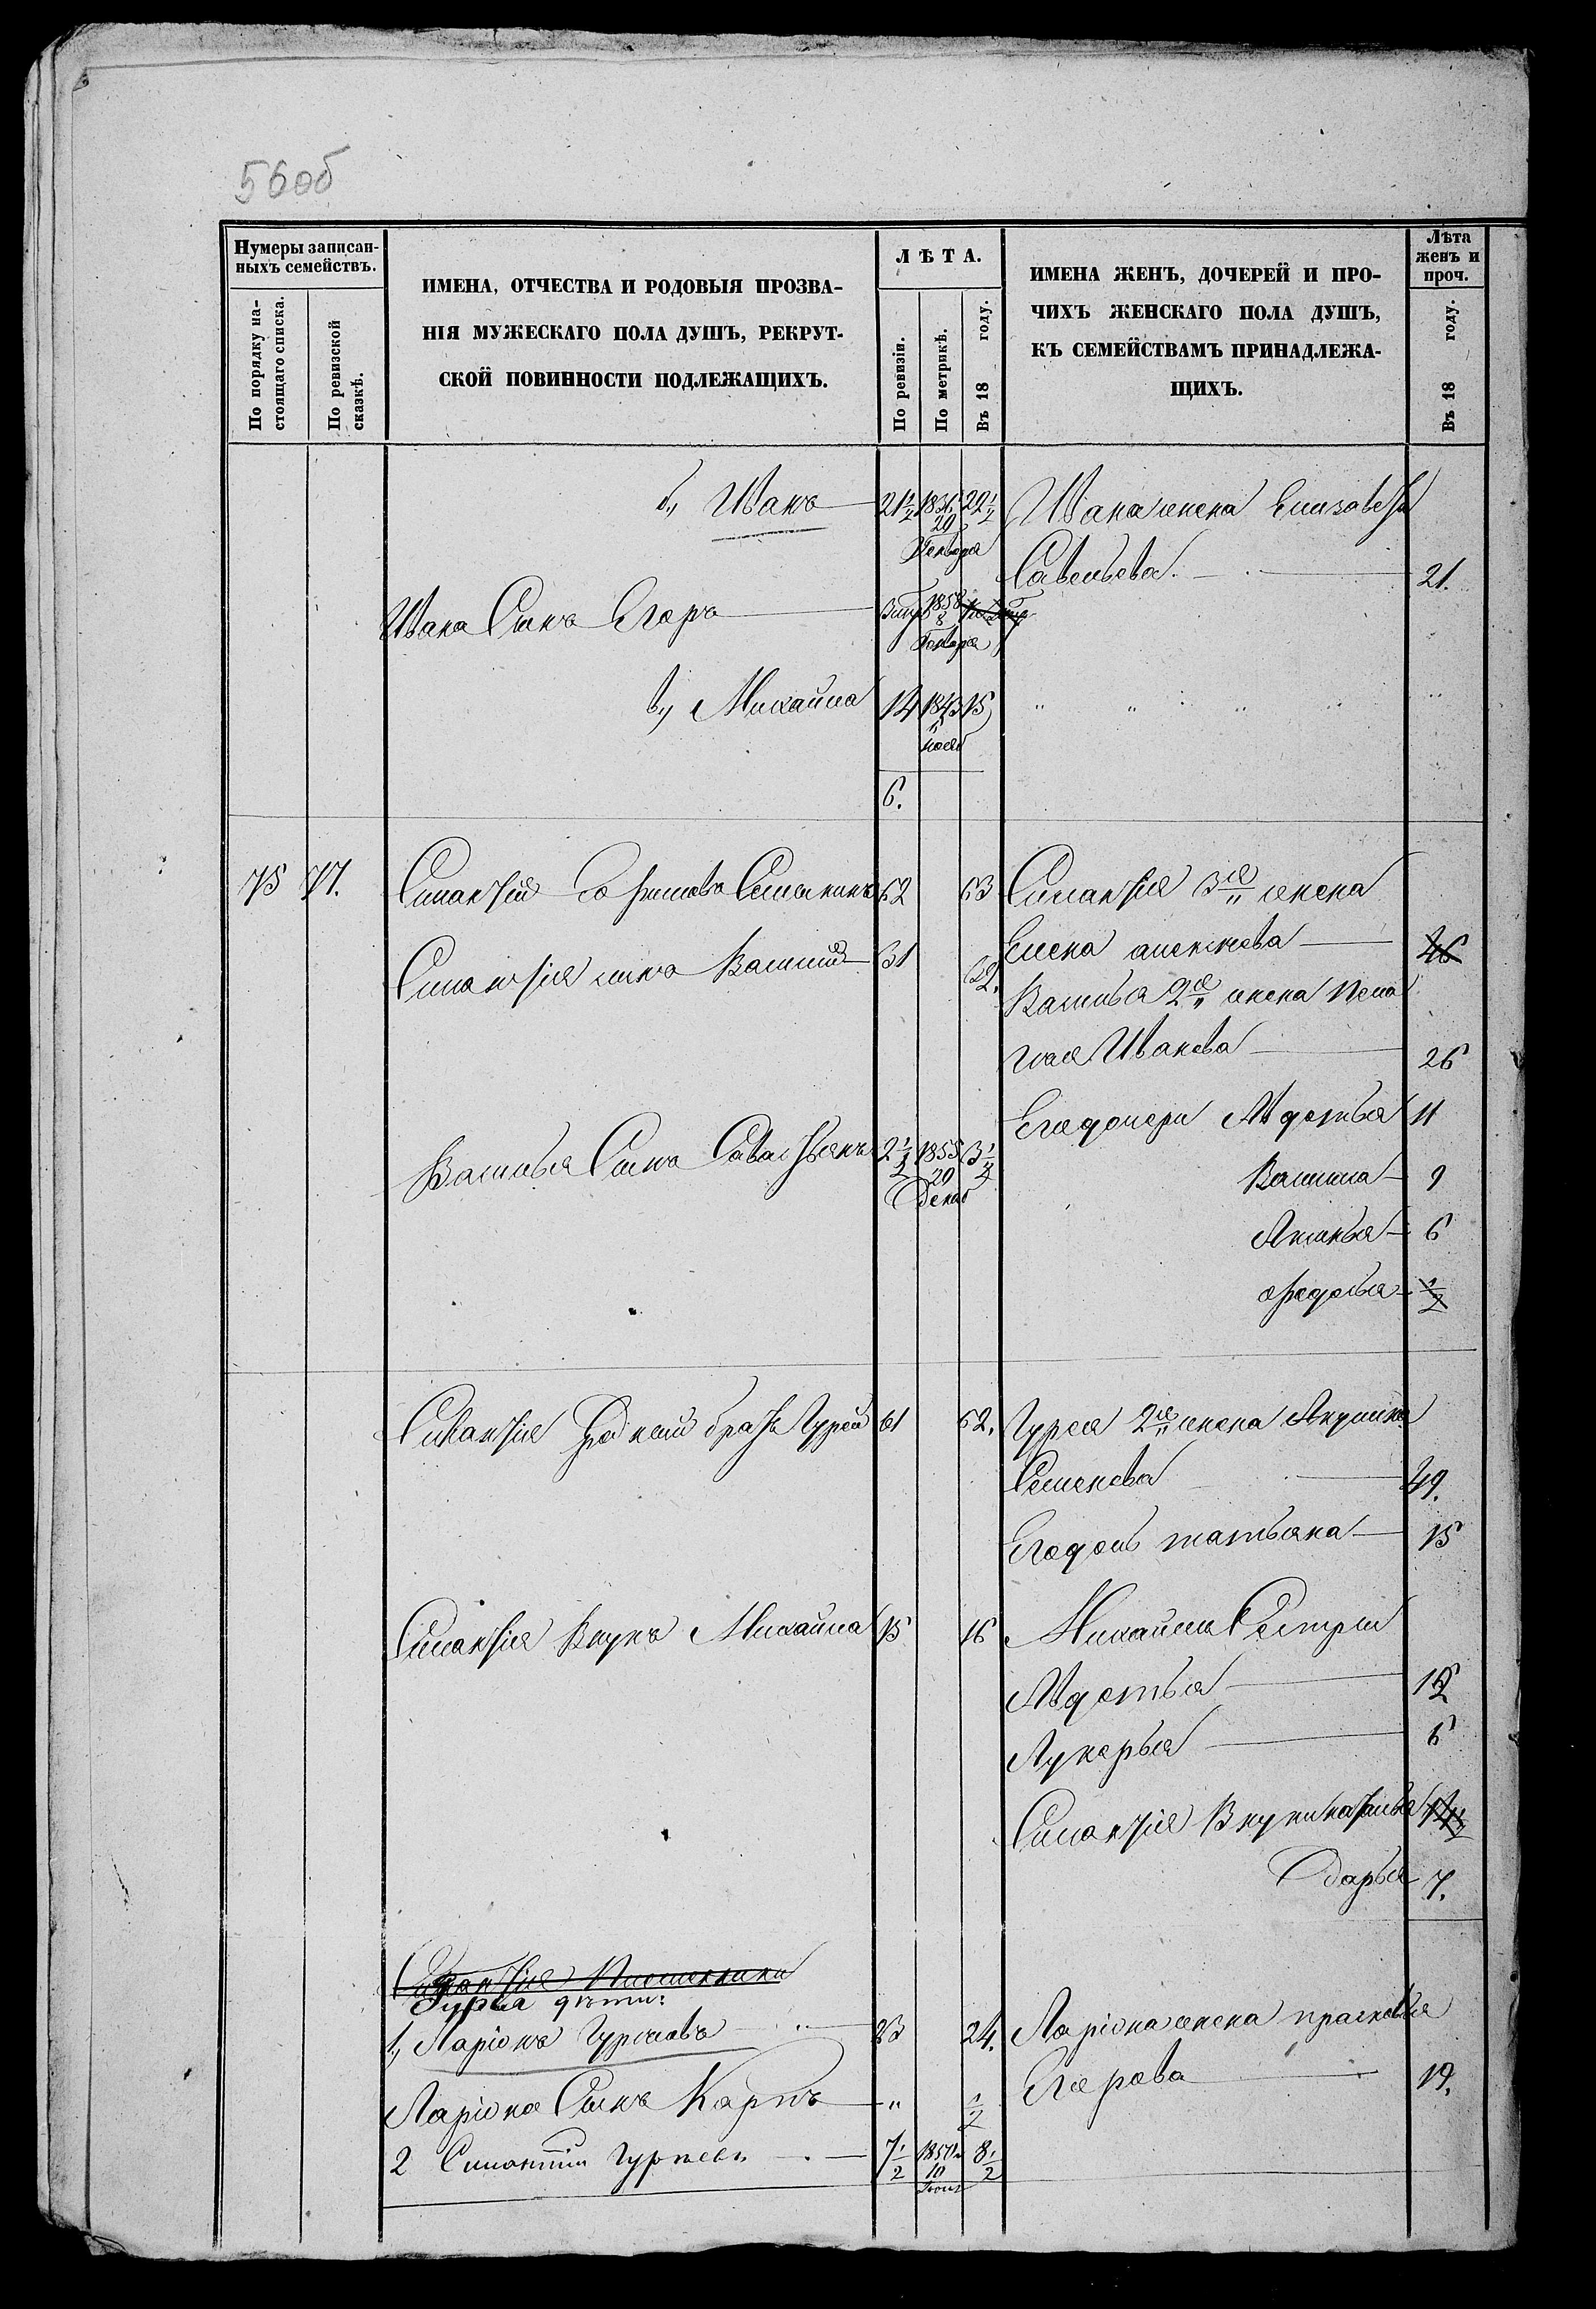 56об
Нумеры записан-
ныхъ семействъ.
По порядку на-
стоящаго списка.
По ревизской
сказкѣ.
ИМЕНА, ОТЧЕСТВА И РОДОВЫЯ ПРОЗВА-
НІЯ МУЖЕСКАГО ПОЛА ДУШЪ, РЕКРУТ-
СКОЙ ПОВИННОСТИ ПОДЛЕЖАЩИХЪ.
ЛѢТА.
По ревизіи.
По метрикѣ.
Въ 18 году.
ИМЕНА ЖЕНЪ, ДОЧЕРЕЙ И ПРО-
ЧИХЪ ЖЕНСКАГО ПОЛА ДУШЪ,
КЪ СЕМЕЙСТВАМЪ ПРИНАДЛЕЖА-
ЩИХЪ.
Лѣта
женъ и
проч.
Въ 18 году.
б., Иванъ 21 1/2 1836 22 1/2 Ивана жена Елизавета
20
Генваря
Савельева. 21.
Ивана Сынъ Егоръ 1858
8
Генваря
в., Михаила 14 1843 15
нояб
6.
75 71. Силантій Софинова Семынинъ 62 63 Силантія 3я жена
Елена алексѣева 46
Силантія сынъ Василій 31 32.
Василья 2я жена Пела
гея Иванова 26
Его дочери Авдотья 11
Василья Сынъ Савастьянъ 2 1/2 1855 3 1/2
20
Декаб
Василиса 9
Аксинья 6
Федосья 1/2
Силантія Родной братъ Гурей 61 62. Гурея 2я жена Акулина
Семенова 49.
Его дочь татьяна 15
Силантія Внукъ Михаила 15 16 Михаилы Сестры
Авдотья 12
Лукерья 6
Силантія Внуки наталья
Дарья 7.
Силантія Племянники
Гурья дѣти:
1, Ларіонъ Гурьевъ 23 24. Ларіона жена прасковья
Егорова 19.
Ларіона Сынъ Карпъ " 1/2
2 Силантій Гурьевъ 7 1/2 1850 8 1/2
10